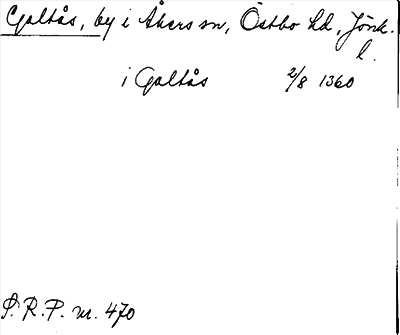 Galtås, by i Åkers sn, Östbo hd, Jönk.
l.
i Galtås 2/8 1360
S.R.P. nr. 470